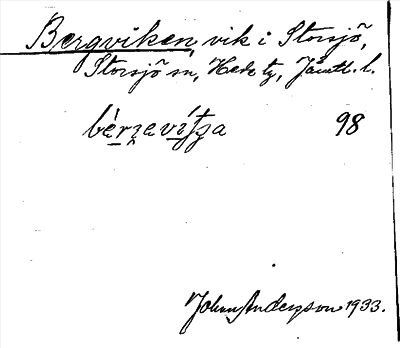 Bergviken, vik i Storsjö,
Storsjö sn, Hede tg, Jämtl. l.
bèrgevítja 98
Johan Anderzson 1933.